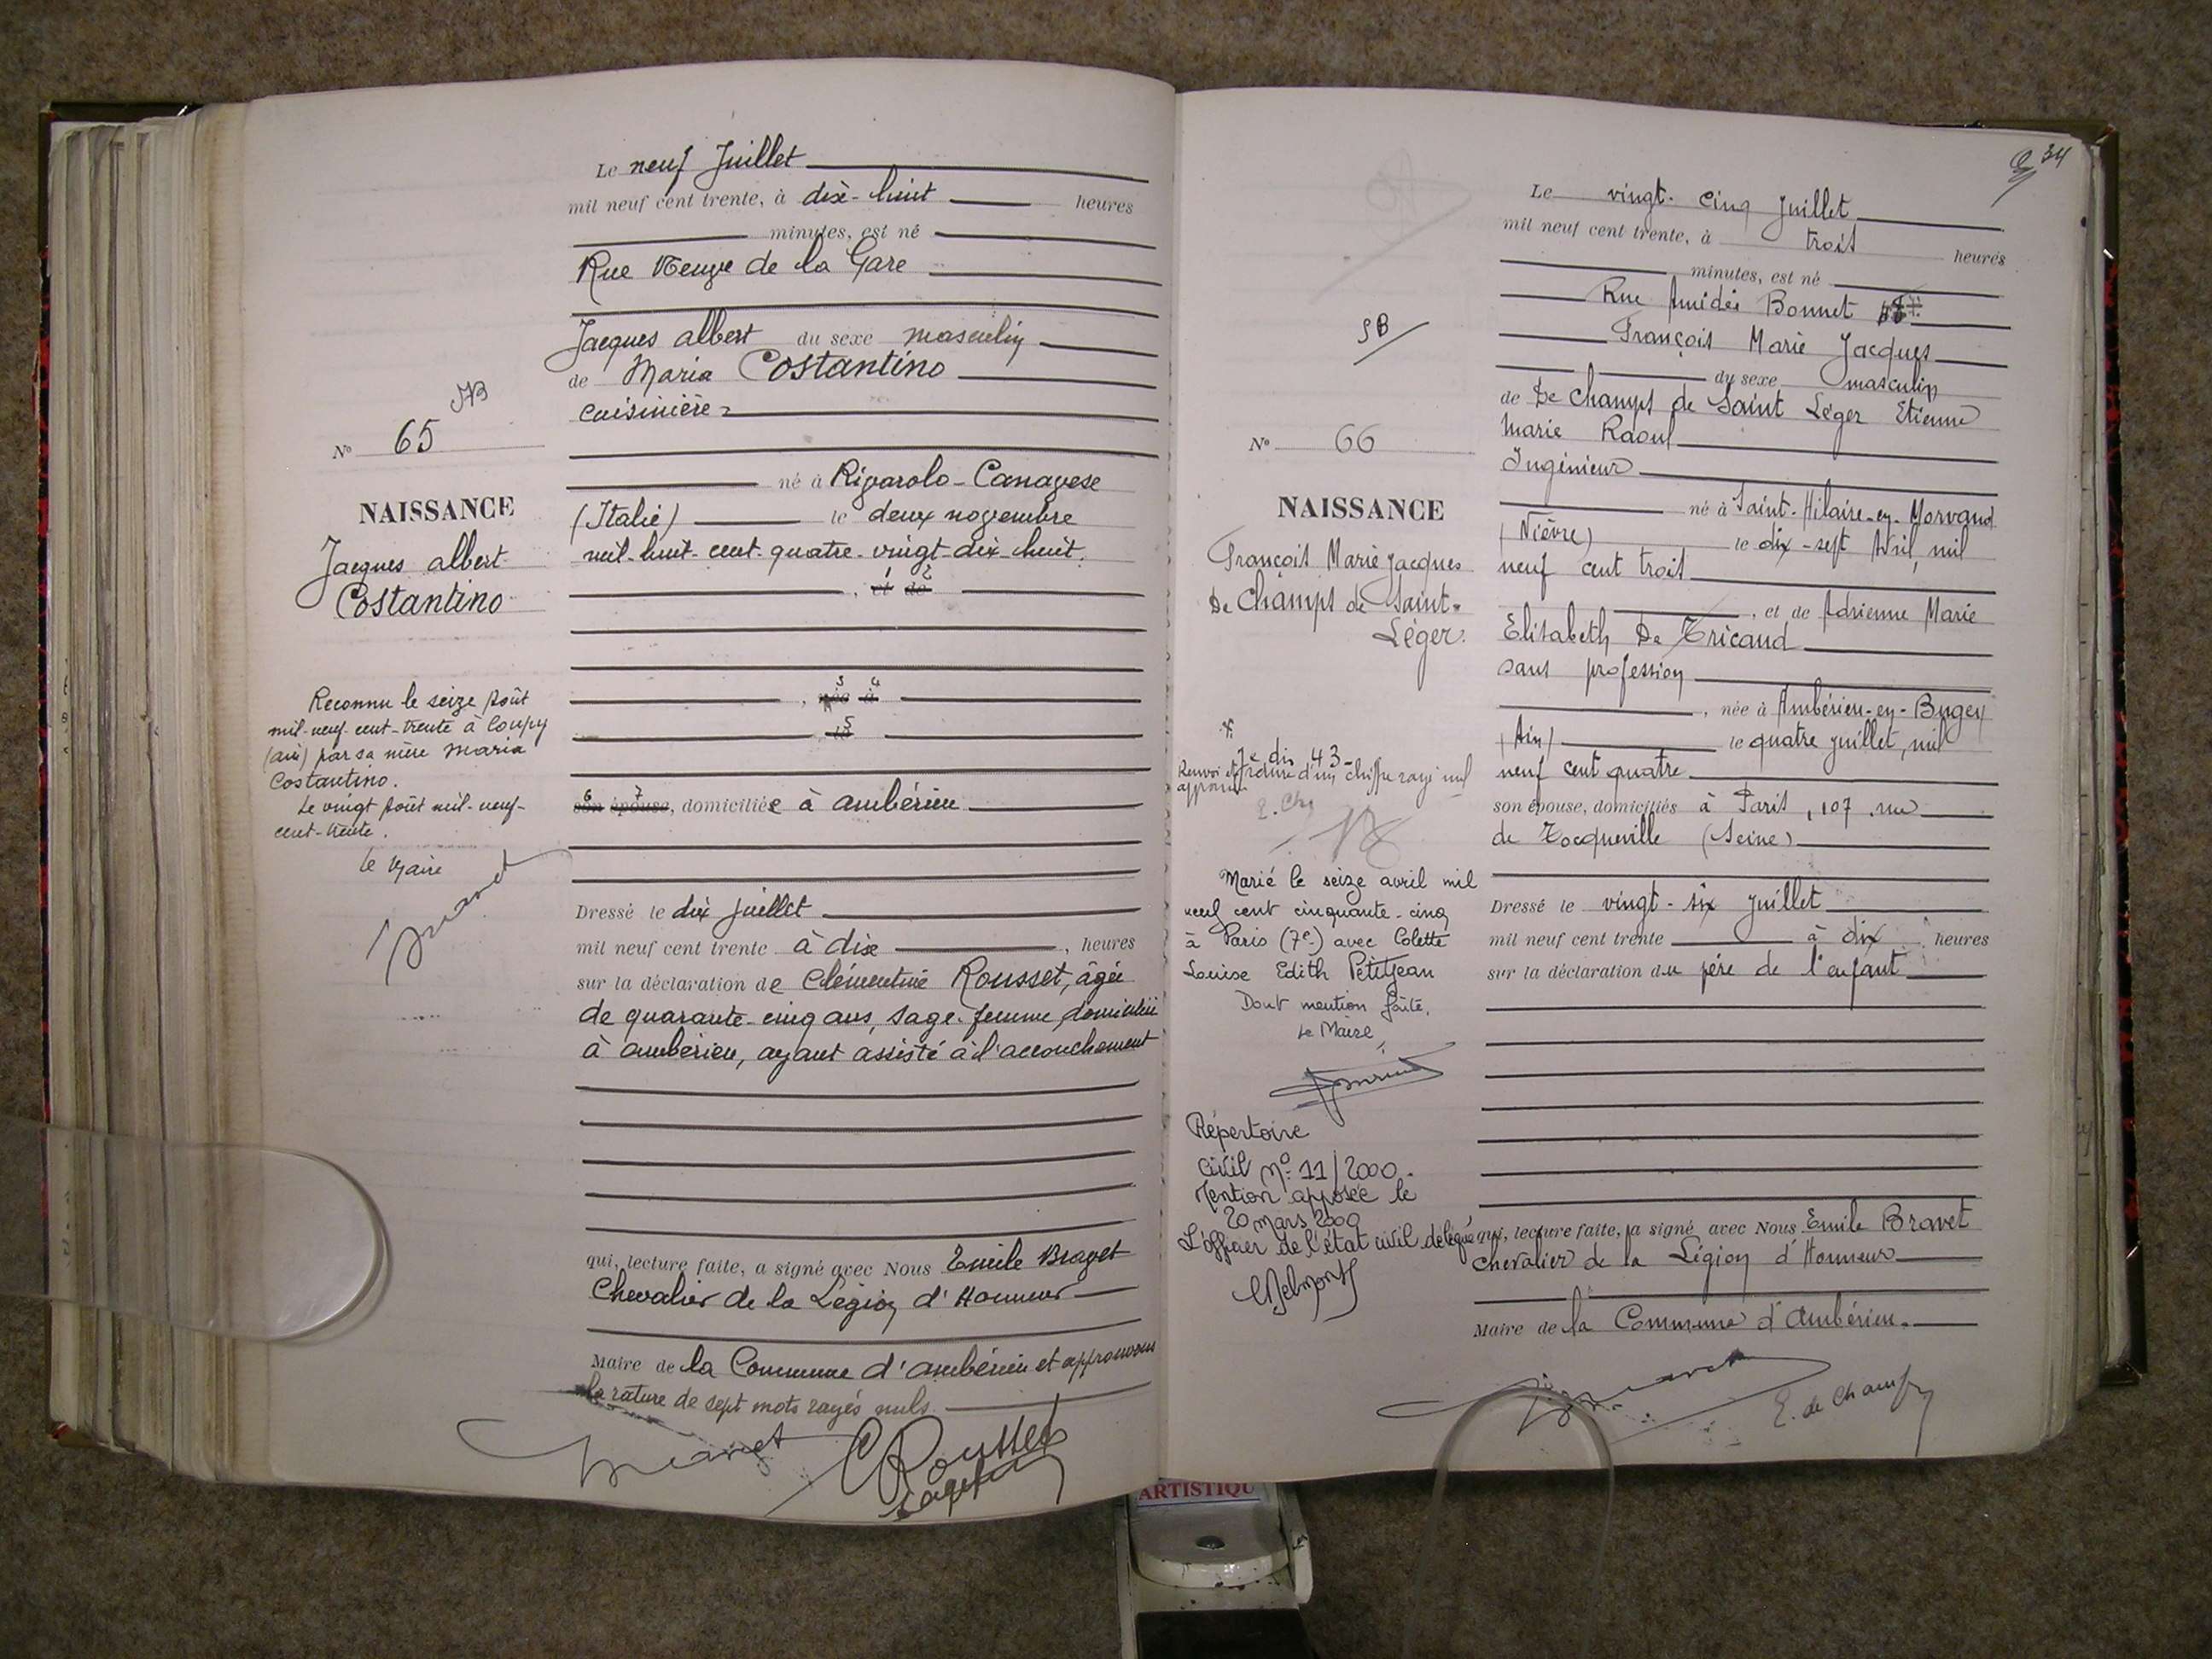 Le neuf Juillet
mil neuf cent trente, à dix-huit heures
minutes, est né
Rue Neuve de la Gare
Jacques albert du sexe masculin
de Maria Costantino
cuisinière
JB
N° 65
né à Rivarolo-Canavese
(Italie) le deux novembre
mil-huit-cent-quatre-vingt-dix-huit.
NAISSANCE
Jacques albert
Costantino
1 2
, et de
3 4
, née à
5
le
6 7
son épouse, domiciliée à ambérieu
Reconnu le seize Août
mil-neuf-cent-trente à Loupy
(ain) par sa mère Maria
Costantino.
Le vingt Août mil-neuf-
cent-trente.
Le Maire
Dressé le dix juillet
mil neuf cent trente à dix , heures
sur la déclaration de Clémentine Rousset, âgée
de quarante-cinq ans, sage-femme, domiciliée
à ambérieu, ayant assisté à l'accouchement
qui, lecture faite, a signé avec Nous Emile Bravet
Chevalier de la Légion d'Honneur
Maire de la Commune d'ambérieu et approuvons
la rature de sept mots rayés nuls.
Bravet
C Rousset
sagefem
34
Le vingt-cinq Juillet
mil neuf cent trente, à trois heures
minutes, est né
Rue Amédée Bonnet
François Marie Jacques
du sexe masculin
de De Champs de Saint Léger Etienne
Marie Raoul
Ingénieur
né à Saint-Hilaire-en-Morvand
(Nièvre) le dix-sept Avril, mil
neuf cent trois
, et de Adrienne Marie
Elisabeth De Tricaud
sans profession
, née à Ambérieu-en-Bugey
(Ain) le quatre juillet, mil
neuf cent quatre
son épouse, domiciliés à Paris, 107 rue
de Tocqueville (Seine)
Dressé le vingt-six juillet
mil neuf cent trente à dix heures
sur la déclaration du père de l'enfant
qui, lecture faite, a signé avec Nous Emile Bravet
Chevalier de la Légion d'Honneur
Maire de la Commune d'Ambérieu.
Bravet
E. de Champs
SB
N° 66
NAISSANCE
François Marie Jacques
De Champs de Saint-
Léger.
43
Renvoi et rature d'un chiffre rayé nul
E. Ch
Marié le seize avril mil
neuf cent cinquante-cinq
à Paris (7e) avec Colette
Louise Edith Petitjean
Dont mention faite,
Le Maire,
Répertoire
civil N° 11/2000.
Mention apposée le
20 mars 2000
L'officier de l'état civil délégué
ARTISTIQU